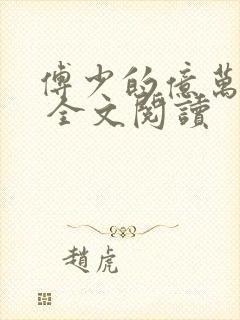 傅少的億萬
全文閱讀
趙虎